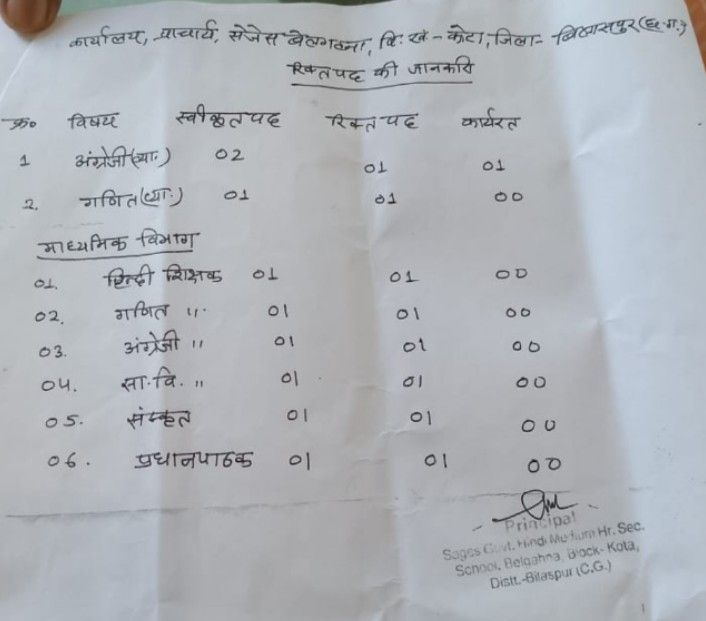 कार्यालय, प्राचार्य, सेजेस बेलगहना, वि.ख - कोटा, जिला - बिलासपुर (छ.ग.)
रिक्त पद की जानकारी
क्र० विषय स्वीकृत पद रिक्त पद कार्यरत
1 अंग्रेजी (व्या.) 02 01 01
2. गणित (व्या.) 01 01 00
माध्यमिक विभाग
01. हिन्दी शिक्षक 01 01 00
02. गणित " 01 01 00
03. अंग्रेजी " 01 01 00
04. सा.वि. " 01 01 00
05. संस्कृत 01 01 00
06. प्रधानपाठक 01 01 00
Principal
Sages Govt. Hindi Medium Hr. Sec.
School, Belgahna, Block-Kota,
Distt.-Bilaspur (C.G.)